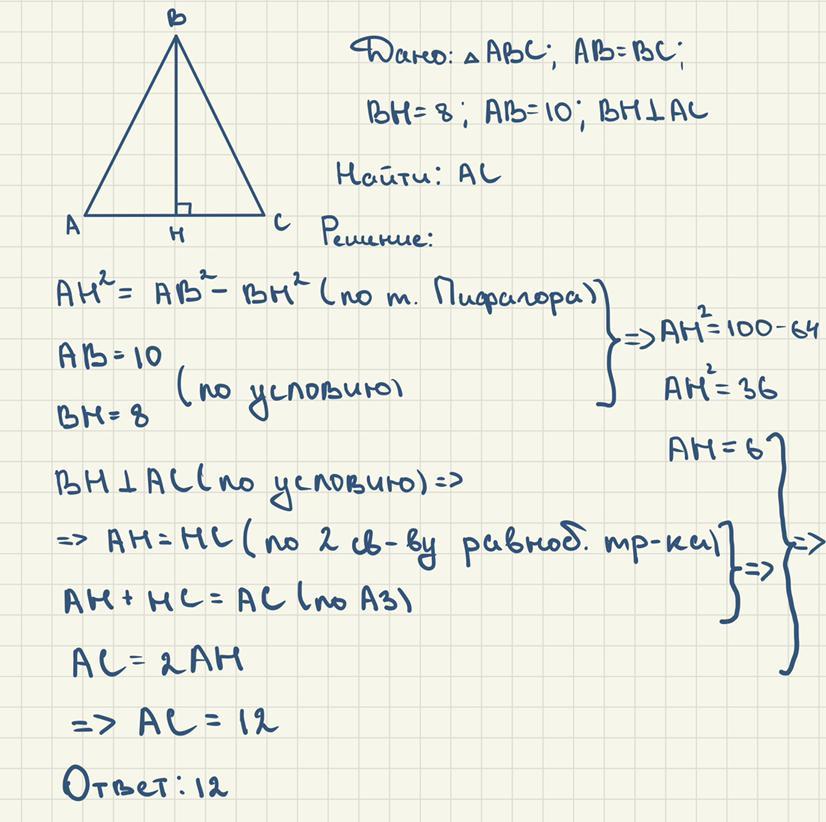 B
Дано: △ABC; AB=BC;
BH=8; AB=10; BH⊥AC
Найти: AC
A H C
Решение:
AH²= AB²- BH² (по т. Пифагора)
=> AH²=100-64
AB=10
BH=8 (по условию)
AH²=36
AH=6
BH⊥AC(по условию)=>
=> AH=HC(по 2 св-ву равноб. тр-ка) =>
=>
AH+HC=AC (по А3)
AC=2AH
=> AC=12
Ответ:12